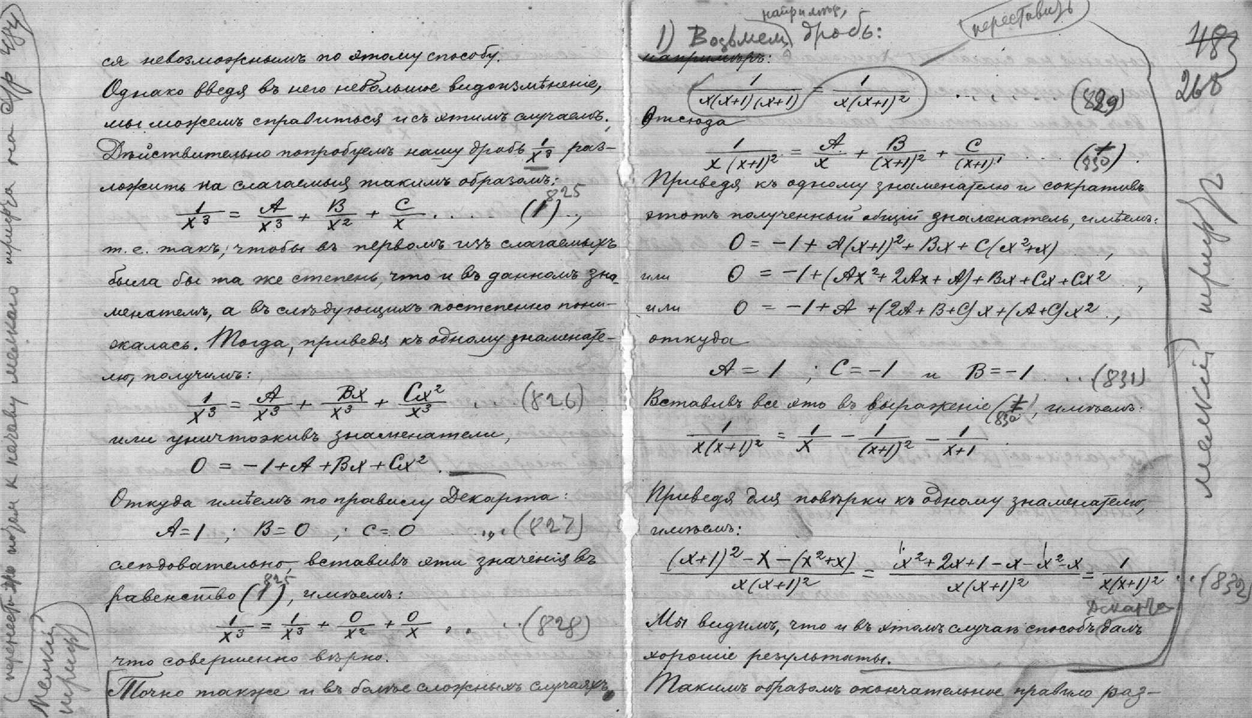 ся невозможнымъ по этому способу.
Однако введя въ него небольшое видоизмѣненіе,
мы можемъ справиться и съ этимъ случаемъ.
Дѣйствительно попробуемъ нашу дробь 1/x³ раз-
ложить на слагаемыя такимъ образомъ:
1/x³ = A/x³ + B/x² + C/x .... (1) 825
т.е. такъ, чтобы въ первомъ изъ слагаемыхъ
была бы та же степень, что и въ данномъ зна-
менателѣ, а въ слѣдующихъ постепенно пони-
жалась. Тогда, приведя къ одному знаменате-
лю, получимъ:
1/x³ = A/x³ + Bx/x³ + Cx²/x³ ... (826)
или уничтоживъ знаменатели,
0 = -1 + A + Bx + Cx².
Откуда имѣемъ по правилу Декарта:
A=1 ; B=0 ; C=0 .... (827)
слѣдовательно, вставивъ эти значенія въ
равенство (1) 825, имѣемъ:
1/x³ = 1/x³ + 0/x² + 0/x .. ... (828)
что совершенно вѣрно.
Точно также и въ болѣе сложныхъ случаяхъ,
Мелкій
шрифтъ
483
268
переставить
например,
1) Возьмем дробь:
напримѣръ:
1/x(x+1)(x+1) = 1/x(x+1)² .... (829)
Отсюда
1/x(x+1)² = A/x + B/(x+1)² + C/(x+1)¹ .... (830)
Приведя къ одному знаменателю и сокративъ
этотъ полученный общій знаменатель, имѣемъ:
0 = -1 + A(x+1)² + Bx + C(x²+x) ,
или 0 = -1 + (Ax² + 2Ax + A) + Bx + Cx + Cx² ,
или 0 = -1 + A + (2A+B+C)x + (A+C)x² .,
откуда
A = 1 ; C = -1 и B = -1 ... (831)
Вставивъ все это въ выраженіе (830), имѣемъ:
1/x(x+1)² = 1/x - 1/(x+1)² - 1/x+1 .
Приведя для повѣрки къ одному знаменателю,
имѣемъ:
(x+1)² - x - (x²+x)/x(x+1)² = x² + 2x + 1 - x - x² - x/x(x+1)² = 1/x(x+1)² ... (832)
Декарта
Мы видимъ, что и въ этомъ случаѣ способъ далъ
хорошіе результаты.
Такимъ образомъ окончательное правило раз-
мелкій шрифтъ